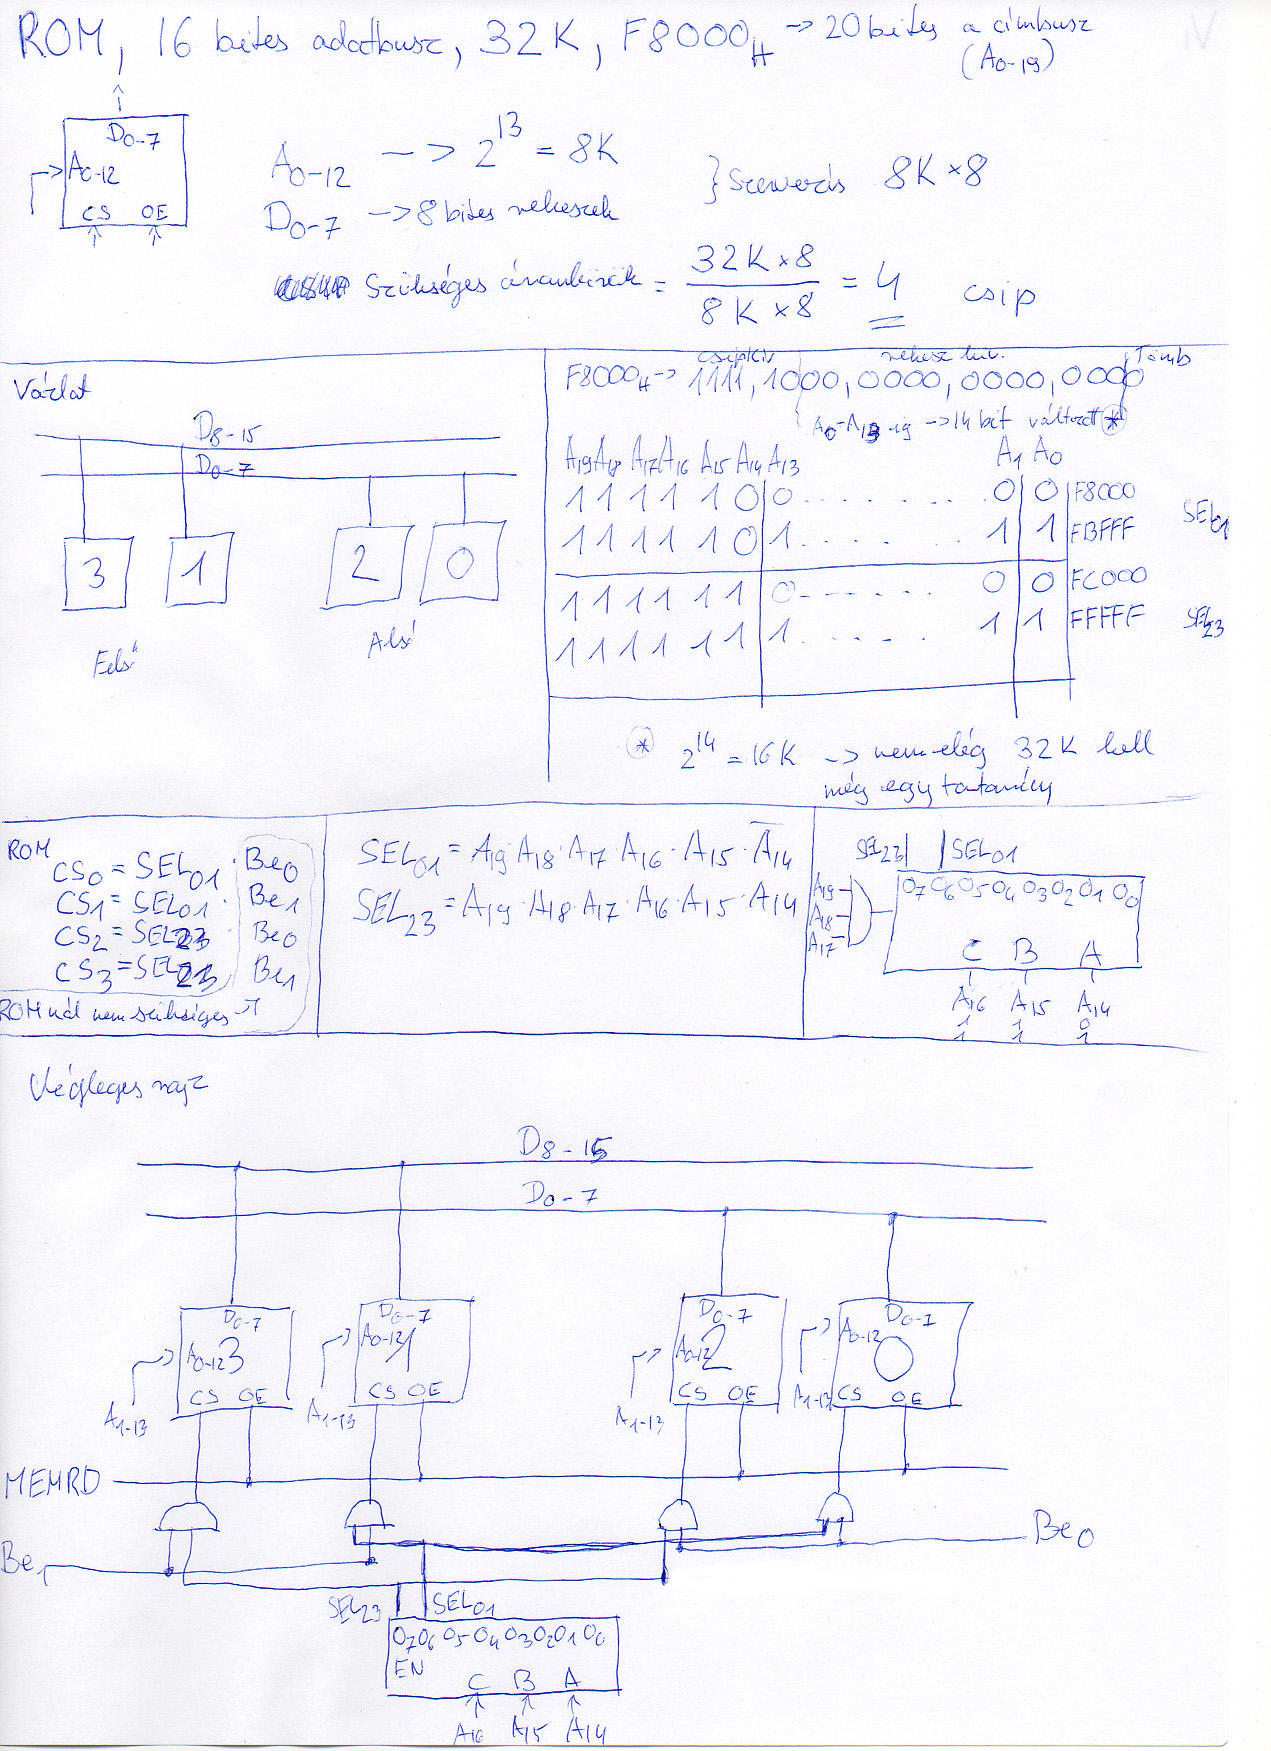 ROM, 16 bites adatbusz, 32K, F8000H -> 20 bites a címbusz
(A0-19)
D0-7
A0-12
CS OE
A0-12 --> 2^13 = 8K
D0-7 -> 8 bites rekeszek
} Szervezés 8K×8
Szükséges áramkörök = 32K×8 / 8K×8 = 4 csip
Vázlat
D8-15
D0-7
3 1 2 0
Felső
Alsó
csipkiv rekesz kiv. Tömb
F8000H -> 1111,1000,0000,0000,0000
A0-A13-ig -> 14 bit változtat *
A19 A18 A17 A16 A15 A14 A13 A1 A0
1 1 1 1 1 0 0 . . . . . . . 0 0 F8000
SEL01
1 1 1 1 1 0 1 . . . . . . . 1 1 FBFFF
1 1 1 1 1 1 0 - . . . . . . 0 0 FC000
1 1 1 1 1 1 1 . . . . . . 1 1 FFFFF
SEL23
* 2^14 = 16K -> nem elég 32K kell
még egy tartomány
ROM
CS0 = SEL01 · Be0
CS1 = SEL01 · Be1
CS2 = SEL23 Be0
CS3 = SEL23 Be1
ROM nál nem szükséges
SEL01 = A19 A18 · A17 · A16 · A15 · A̅14
SEL23 = A19 · A18 · A17 · A16 · A15 · A14
SEL23 SEL01
A19
A18
A17
O7 O6 O5 O4 O3 O2 O1 O0
C B A
A16 A15 A14
1 1 0
1 1 1
Végleges rajz
D8-15
D0-7
D0-7 D0-7 D0-7 D0-7
A0-12 3 A0-12 1 A0-12 2 A0-12 0
CS OE CS OE CS OE CS OE
A1-13 A1-13 A1-13 A1-13
MEMRD
Be1
Be0
SEL23 SEL01
O7 O6 O5 O4 O3 O2 O1 O0
EN
C B A
A16 A15 A14